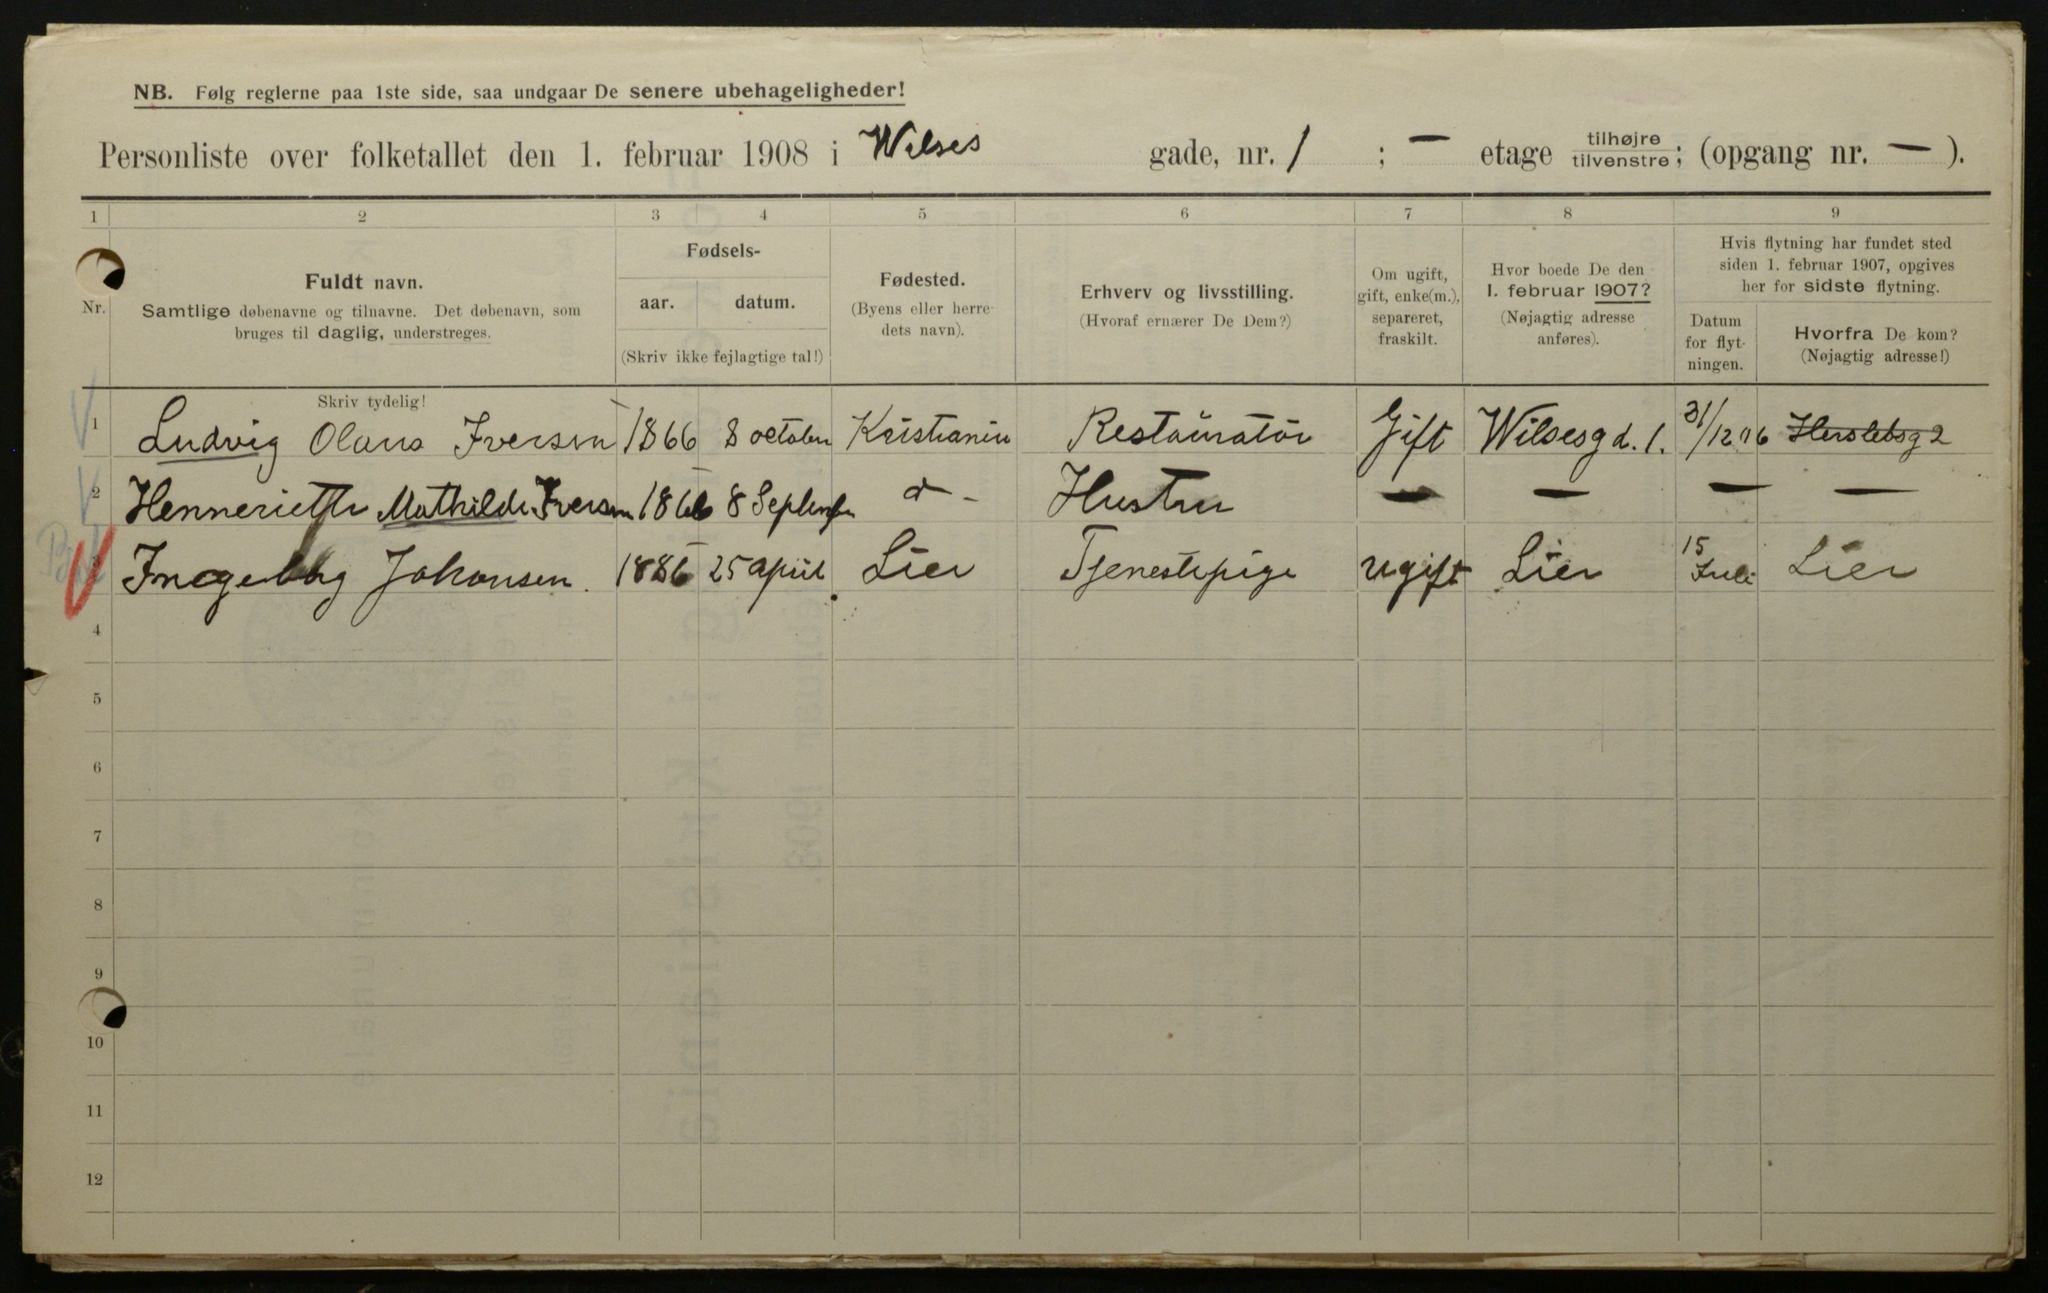 NB. Følg reglerne paa 1ste side, saa undgaar De senere ubehageligheder!
Personliste over folketallet den 1. februar 1908 i Wilses gade, nr. 1 ; — etage tilhøjre tilvenstre; (opgang nr. — ).
1 2 3 4 5 6 7 8 9
Nr.
Fuldt navn.
Samtlige døbenavne og tilnavne. Det døbenavn, som
bruges til daglig, understreges.
Skriv tydelig!
Fødsels-
aar. datum.
(Skriv ikke fejlagtige tal!)
Fødested.
(Byens eller herre-
dets navn).
Erhverv og livsstilling.
(Hvoraf ernærer De Dem?)
Om ugift,
gift, enke(m.),
separeret,
fraskilt.
Hvor boede De den
1. februar 1907?
(Nøjagtig adresse
anføres).
Hvis flytning har fundet sted
siden 1. februar 1907, opgives
her for sidste flytning.
Datum
for flyt-
ningen.
Hvorfra De kom?
(Nøjagtig adresse!)
1 Ludvig Olaus Iversen 1866 8 october Kristiania Restauratør Gift Wilsesgd. 1. 31/12 06 Herslebsg 2
2 Henneriette Mathilde Iversen 1866 8 September d- Hustru — — — —
3 Ingeborg Johansen. 1886 25 april Lier Tjenestepige Ugift Lier 15 Juli Lier
4
5
6
7
8
9
10
11
12